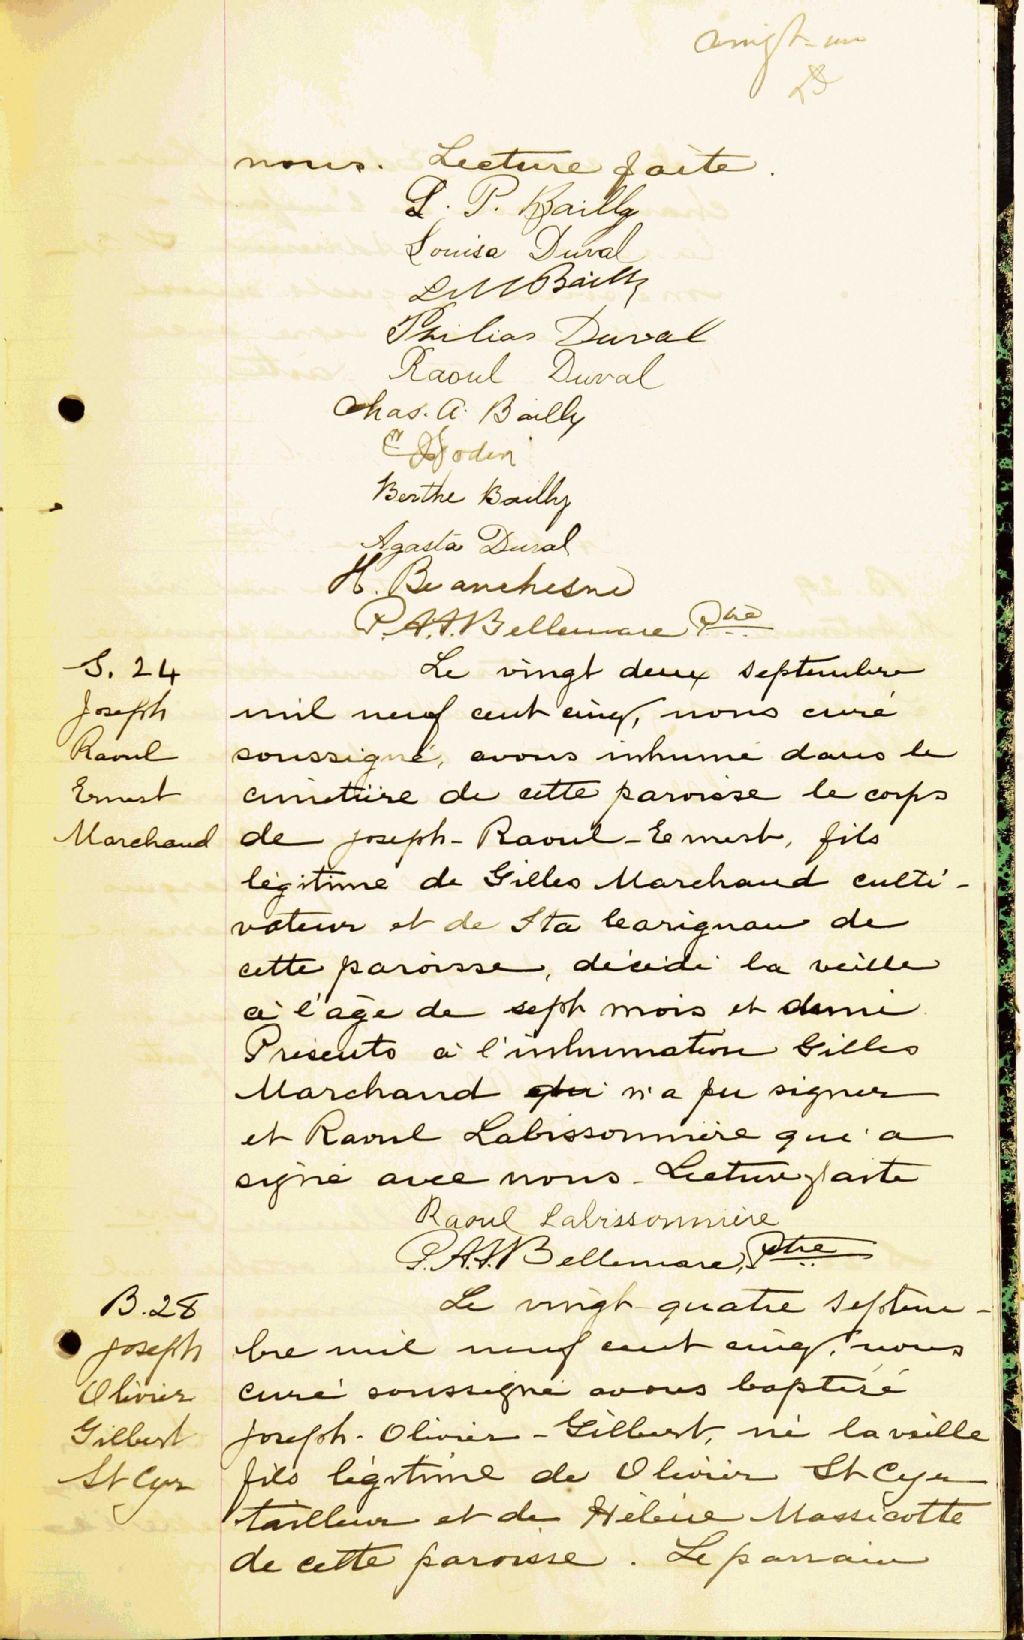 vingt-un
nous. Lecture faite.
L. P. Bailly
Louisa Duval
Bailly
Philias Duval
Raoul Duval
Chas. A. Bailly
Godin
Berthe Bailly
Agasta Duval
H. Beauchesne
P.A.A. Bellemare Ptre
S. 24
Joseph
Raoul
Ernest
Marchand
Le vingt deux septembre
mil neuf cent cinq, nous curé
soussigné, avons inhumé dans le
cimetière de cette paroisse le corps
de Joseph-Raoul-Ernest, fils
légitime de Gilles Marchand culti-
vateur et de Ita Carignan de
cette paroisse, décédé la veille
à l'âge de sept mois et demi
Présents à l'inhumation Gilles
Marchand qui n'a pu signer
et Raoul Labissonnière qui a
signé avec nous. Lecture faite
Raoul Labissonnière
P.A.A. Bellemare, Ptre
B. 28
Joseph
Olivier
Gilbert
St Cyr
Le vingt quatre septem-
bre mil neuf cent cinq, nous
curé soussigné avons baptisé
Joseph-Olivier-Gilbert, né la veille
fils légitime de Olivier St Cyr
tailleur et de Hélène Massicotte
de cette paroisse. Le parrain